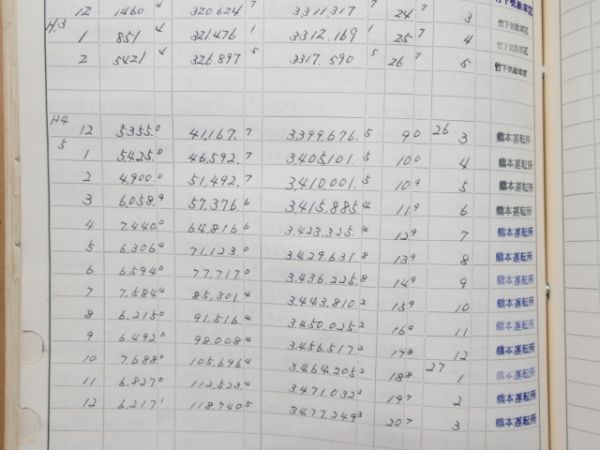 12 1460 4 320.624 7 3,311,317 7 24 7 3 竹下気動車区
H.3 1 851 4 321,476 1 3312,169 1 25 7 4 竹下気動車区
2 5421 4 326.897 5 3317.590 5 26 7 5 竹下気動車区
H4 12 5355.0 41,167.7 3,399,676.5 9 0 26 3 熊本運転所
5 1 5425.0 46,592.7 3,405,101.5 10 0 4 熊本運転所
2 4,900.0 51,492.7 3,410,001.5 10 9 5 熊本運転所
3 6,058.9 57,376 6 3,415,885.4 11 9 6 熊本運転所
4 7,440.0 64,816 6 3,423,325.4 12 9 7 熊本運転所
5 6,306 4 71,123 0 3,429,631 8 13 9 8 熊本運転所
6 6,594 0 77,717 0 3,436,225 8 14 9 9 熊本運転所
7 7,584 4 85,301 4 3,443,810 2 15 9 10 熊本運転所
8 6,215 0 91,516 4 3,450,025 2 16 9 11 熊本運転所
9 6,492 0 98,008 4 3,456,517 2 17 8 12 熊本運転所
10 7,688 0 105,696 4 3,464,205 2 18 8 27 1 熊本運転所
11 6,827 0 112,523 4 3,471,032 2 19 7 2 熊本運転所
12 6,217 1 118,740 5 3,477,249 3 20 7 3 熊本運転所